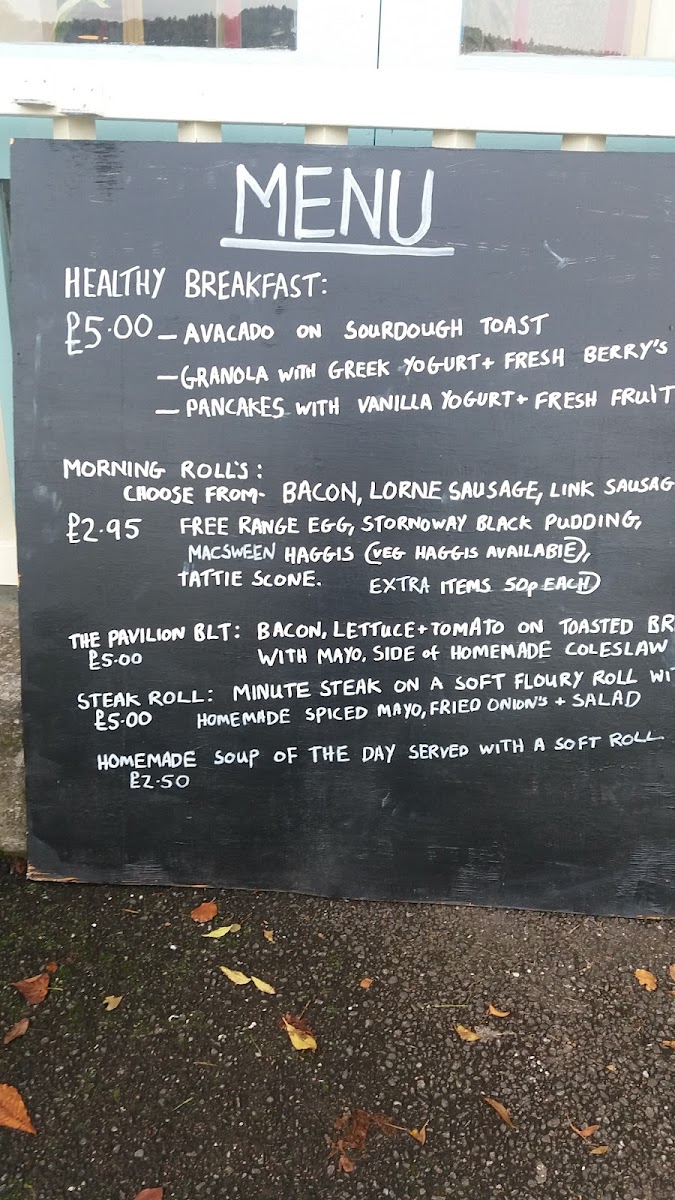 MENU
HEALTHY BREAKFAST:
£5.00 – AVACADO ON SOURDOUGH TOAST
– GRANOLA WITH GREEK YOGURT + FRESH BERRY'S
– PANCAKES WITH VANILLA YOGURT + FRESH FRUIT
MORNING ROLL'S:
CHOOSE FROM- BACON, LORNE SAUSAGE, LINK SAUSAG
£2.95 FREE RANGE EGG, STORNOWAY BLACK PUDDING,
MACSWEEN HAGGIS (VEG HAGGIS AVAILABLE),
TATTIE SCONE. EXTRA ITEMS 50p EACH)
THE PAVILION BLT: BACON, LETTUCE + TOMATO ON TOASTED BR
£5.00 WITH MAYO, SIDE of HOMEMADE COLESLAW
STEAK ROLL: MINUTE STEAK ON A SOFT FLOURY ROLL WIT
£5.00 HOMEMADE SPICED MAYO, FRIED ONION'S + SALAD
HOMEMADE SOUP OF THE DAY SERVED WITH A SOFT ROLL.
£2.50